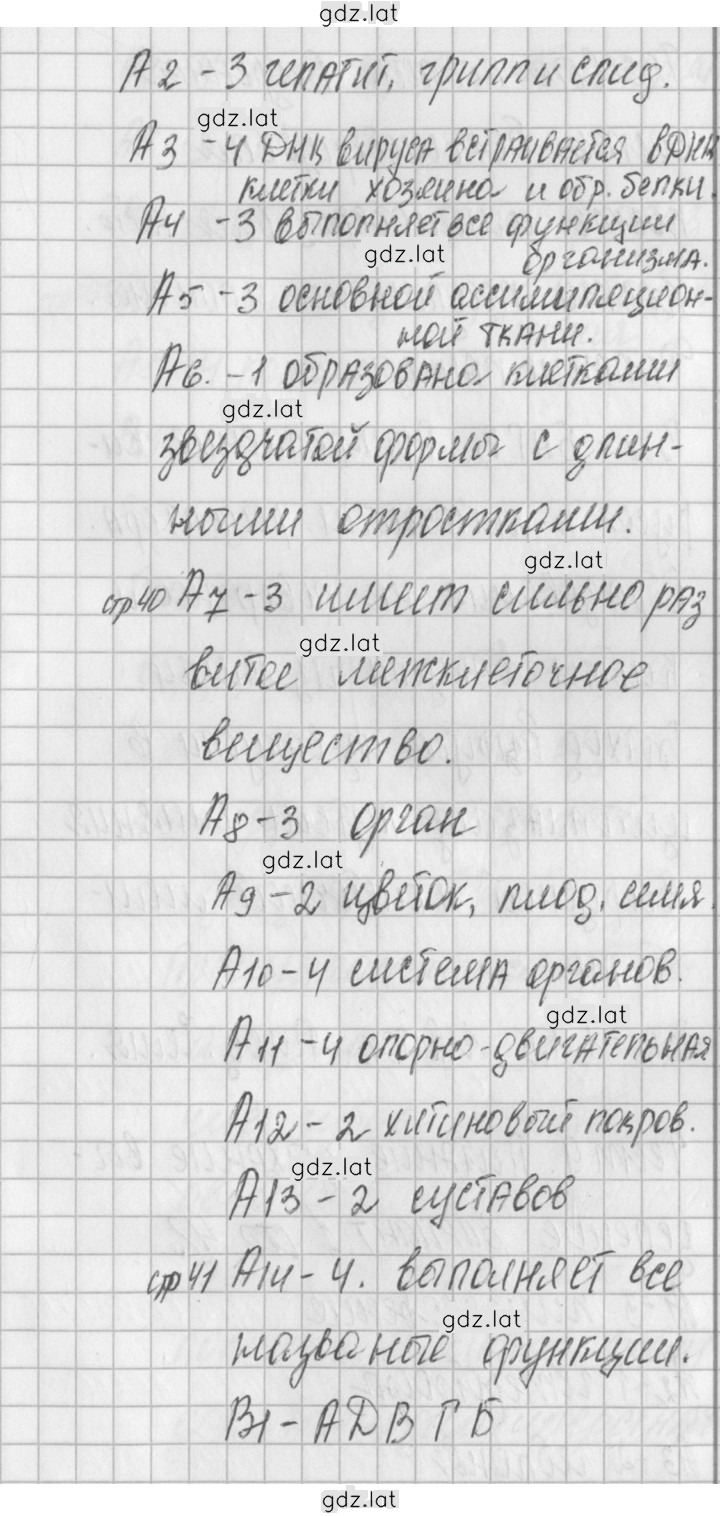 gdz.lat
А2 - 3 гепатит, грипп и спид.
gdz.lat
А3 - 4 ДНК вируса встраивается в ДНК
клетки хозяина и обр. белки.
А4 - 3 выполняет все функции
gdz.lat
организма.
А5 - 3 основной ассимиляцион-
ной ткани.
А6. - 1 образована клетками
gdz.lat
звездчатой формы с длин-
ными отростками.
gdz.lat
стр 40 А7 - 3 имеет сильно раз
gdz.lat
витое межклеточное
вещество.
А8 - 3 орган
gdz.lat
А9 - 2 цветок, плод, семя.
А10 - 4 система органов.
gdz.lat
А11 - 4 опорно-двигательная
А12 - 2 хитиновый покров.
gdz.lat
А13 - 2 суставов
стр 41 А14 - 4. выполняет все
gdz.lat
названые функции.
В1 - А Д В Г Б
gdz.lat